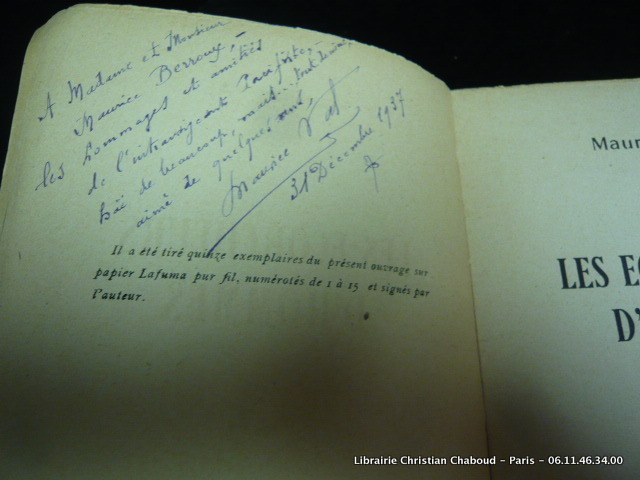 A Madame et Monsieur
Maurice Berroux, –
les hommages et amitiés
de l'intransigeant Pacifiste, –
haï de beaucoup, mais... tout de même
aimé de quelques uns,
Maurice Vat.
31 Décembre 1937
Il a été tiré quinze exemplaires du présent ouvrage sur
papier Lafuma pur fil, numérotés de 1 à 15 et signés par
l'auteur.
Maur
LES E
D'
Librairie Christian Chaboud – Paris – 06.11.46.34.00